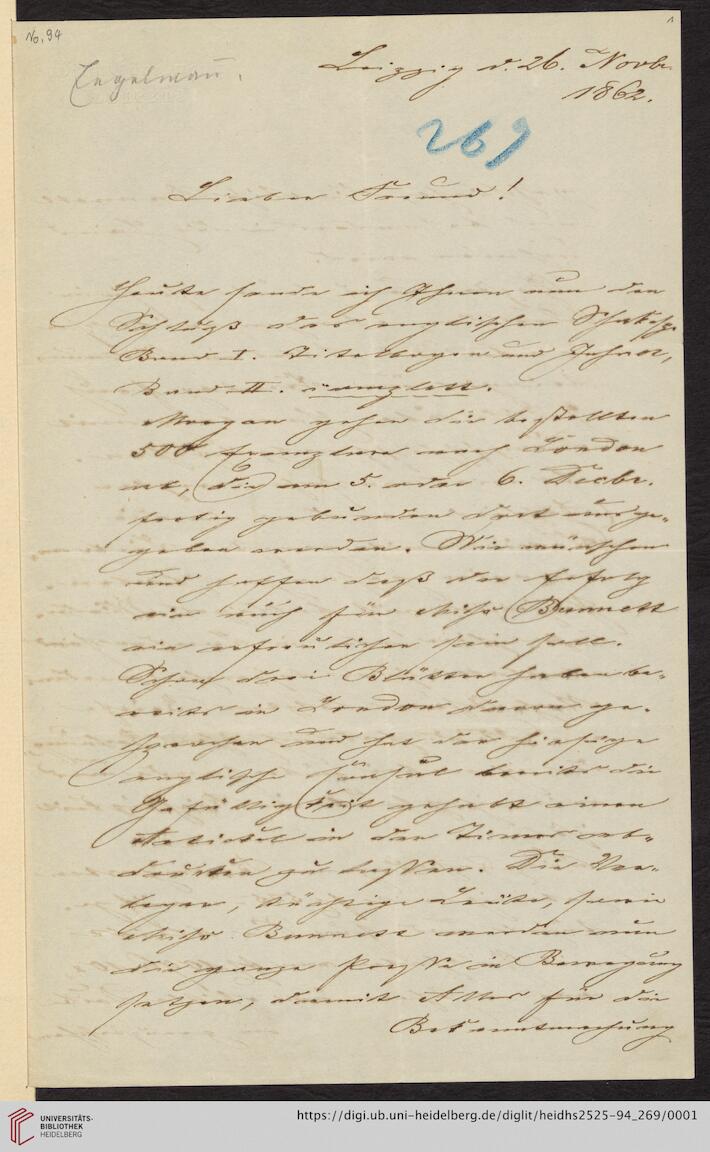 No. 94
1
Engelmann.
Leipzig d. 26. Novbr.
1862.
269
Lieber Freund!
Heute sende ich Ihnen nun den
Schluß des englischen
Band I. Titelbogen und Inhalt,
Band II. complett.
Morgen gehen die bestellten
500 Exemplare nach London
ab, die am 5. oder 6. Decbr.
fertig gebunden dort ausge-
geben werden. Wir wünschen
und hoffen daß der Erfolg
ein auch für Miss Bunnett
ein erfreulicher sein soll.
Schon drei Blätter haben be-
reits in London davon ge-
sprochen und hat der hiesige
englische Consul bereits die
Gefälligkeit gehabt einen
Artikel in der Times ab-
drucken zu lassen. Die Ver-
leger, tüchtige Leute, sowie
Miss Bunnett werden nun
die ganze Presse in Bewegung
setzen, damit Alles für die
Bekanntmachung
UNIVERSITÄTS-
BIBLIOTHEK
HEIDELBERG
https://digi.ub.uni-heidelberg.de/diglit/heidhs2525-94_269/0001